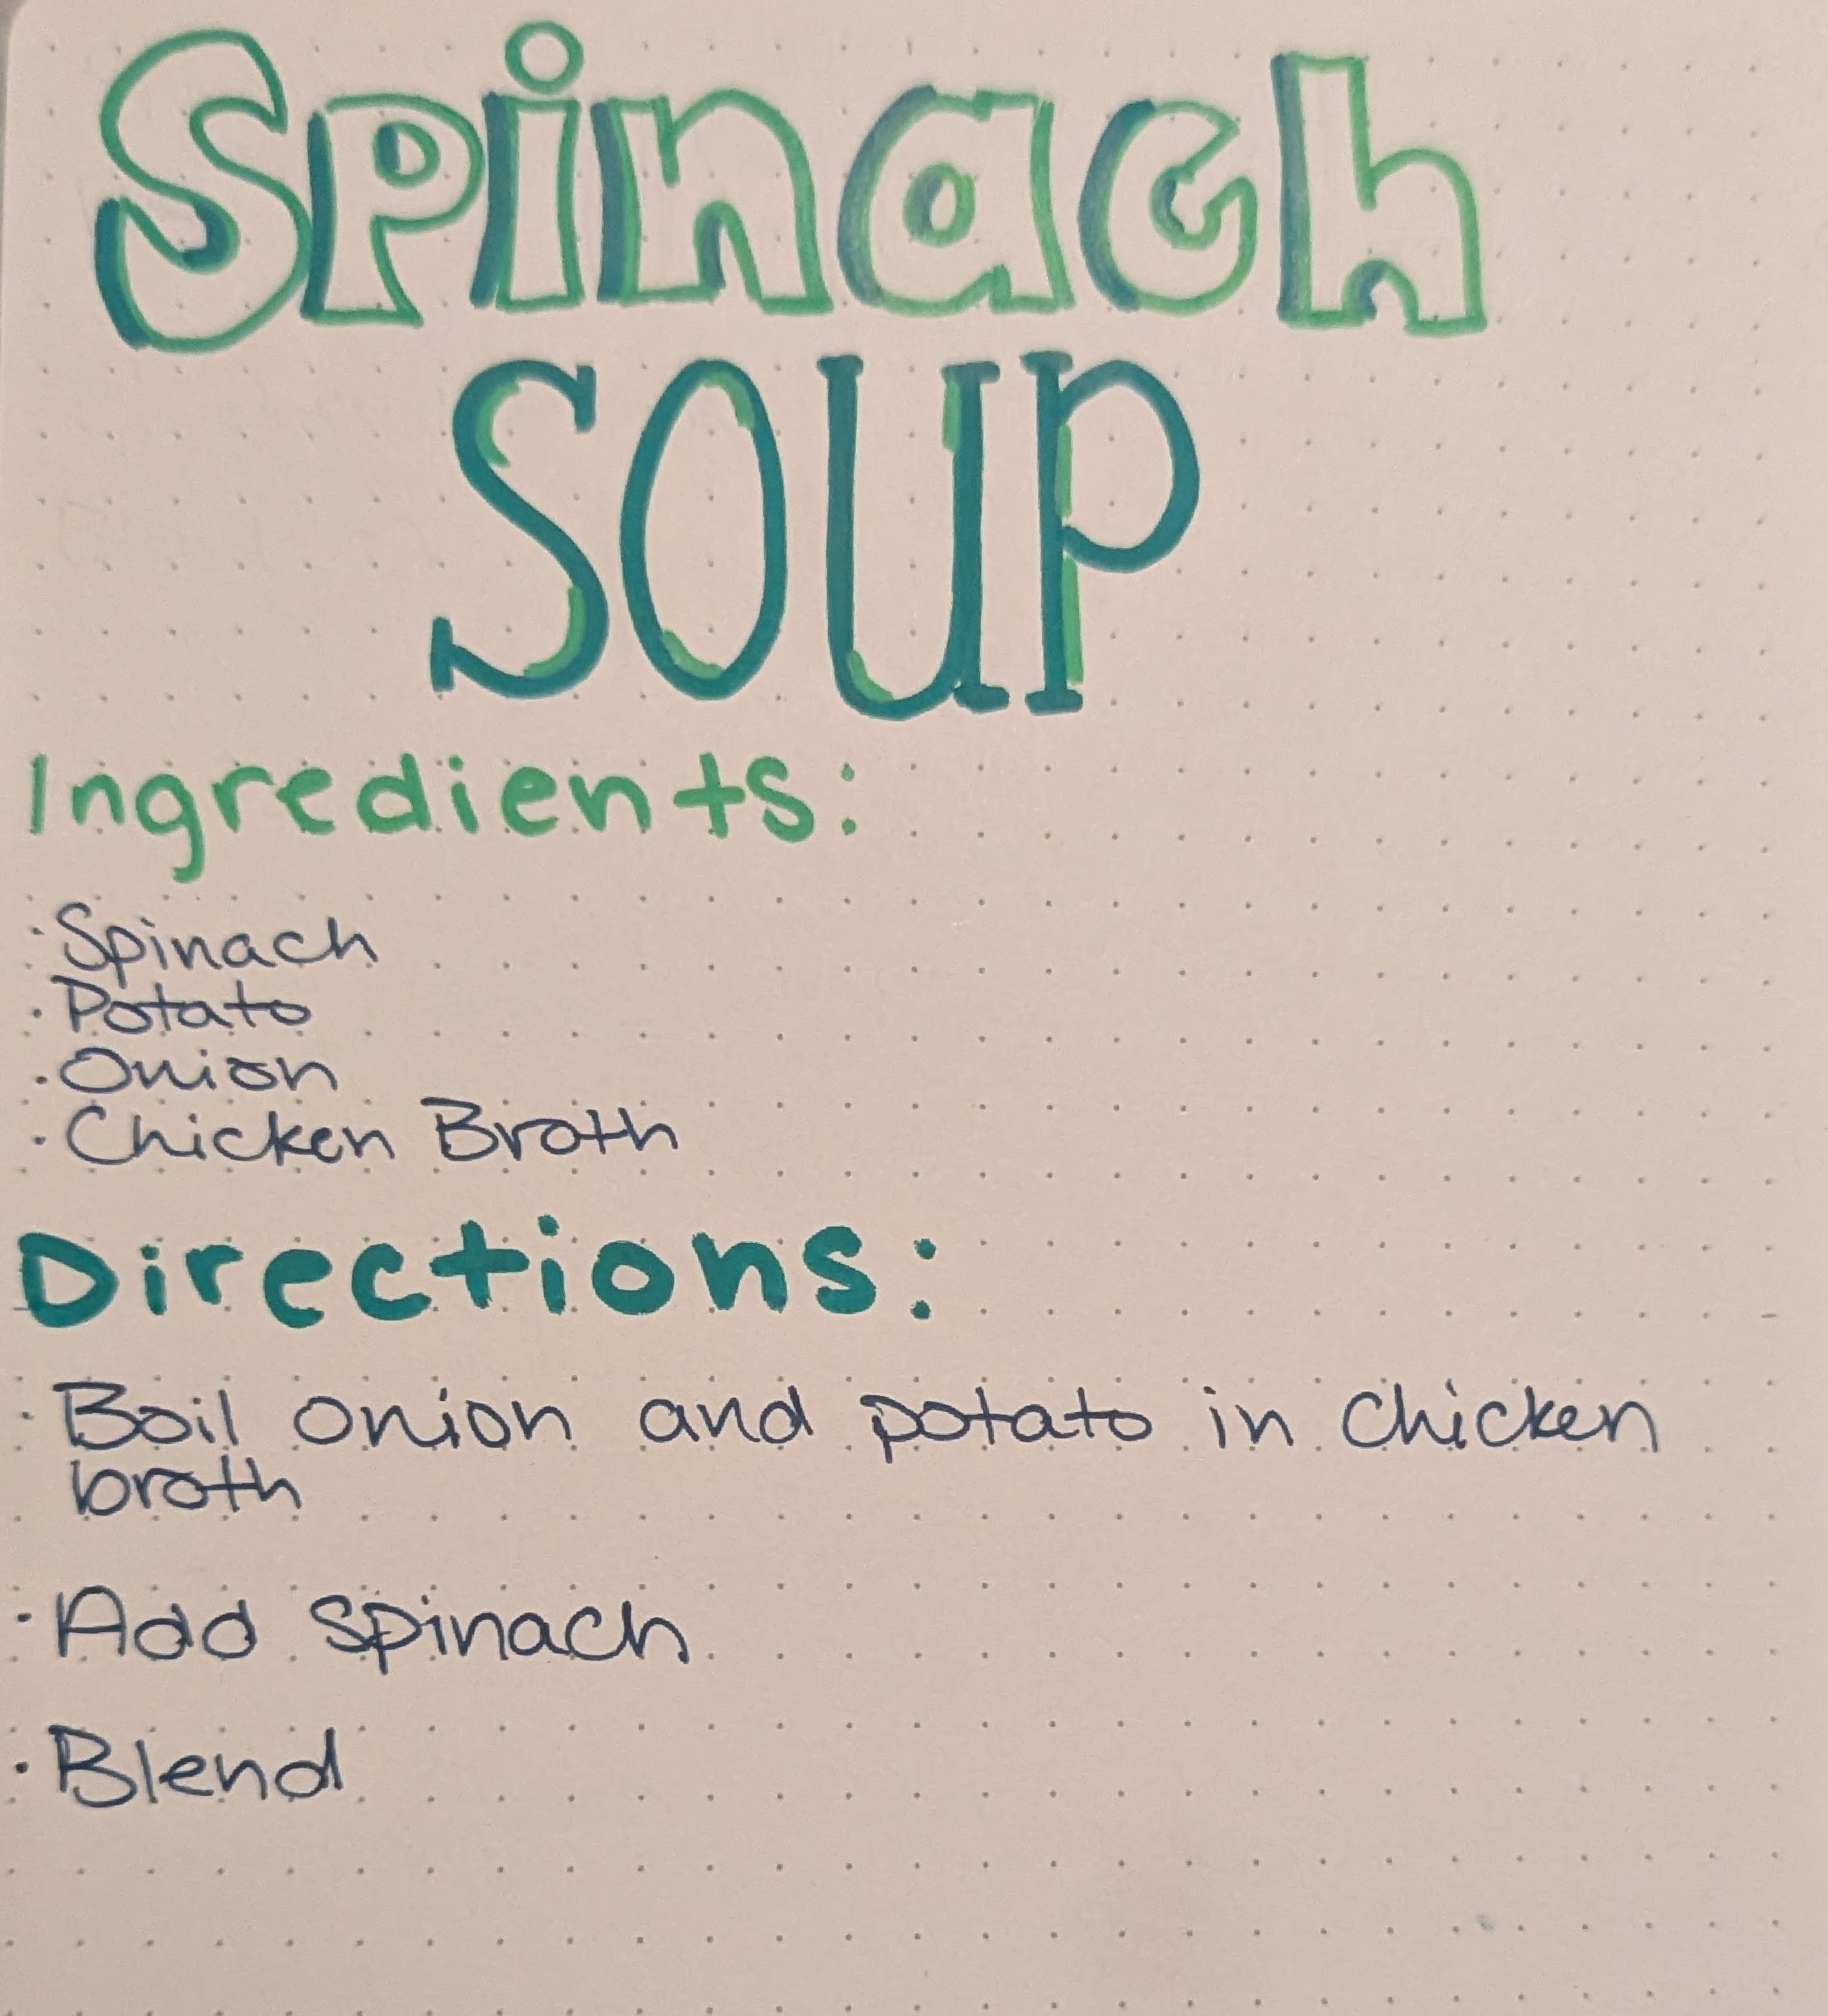 Spinach
SOUP
Ingredients:
· Spinach
· Potato
· Onion
· Chicken Broth
Directions:
· Boil onion and potato in chicken
broth
· Add spinach
· Blend